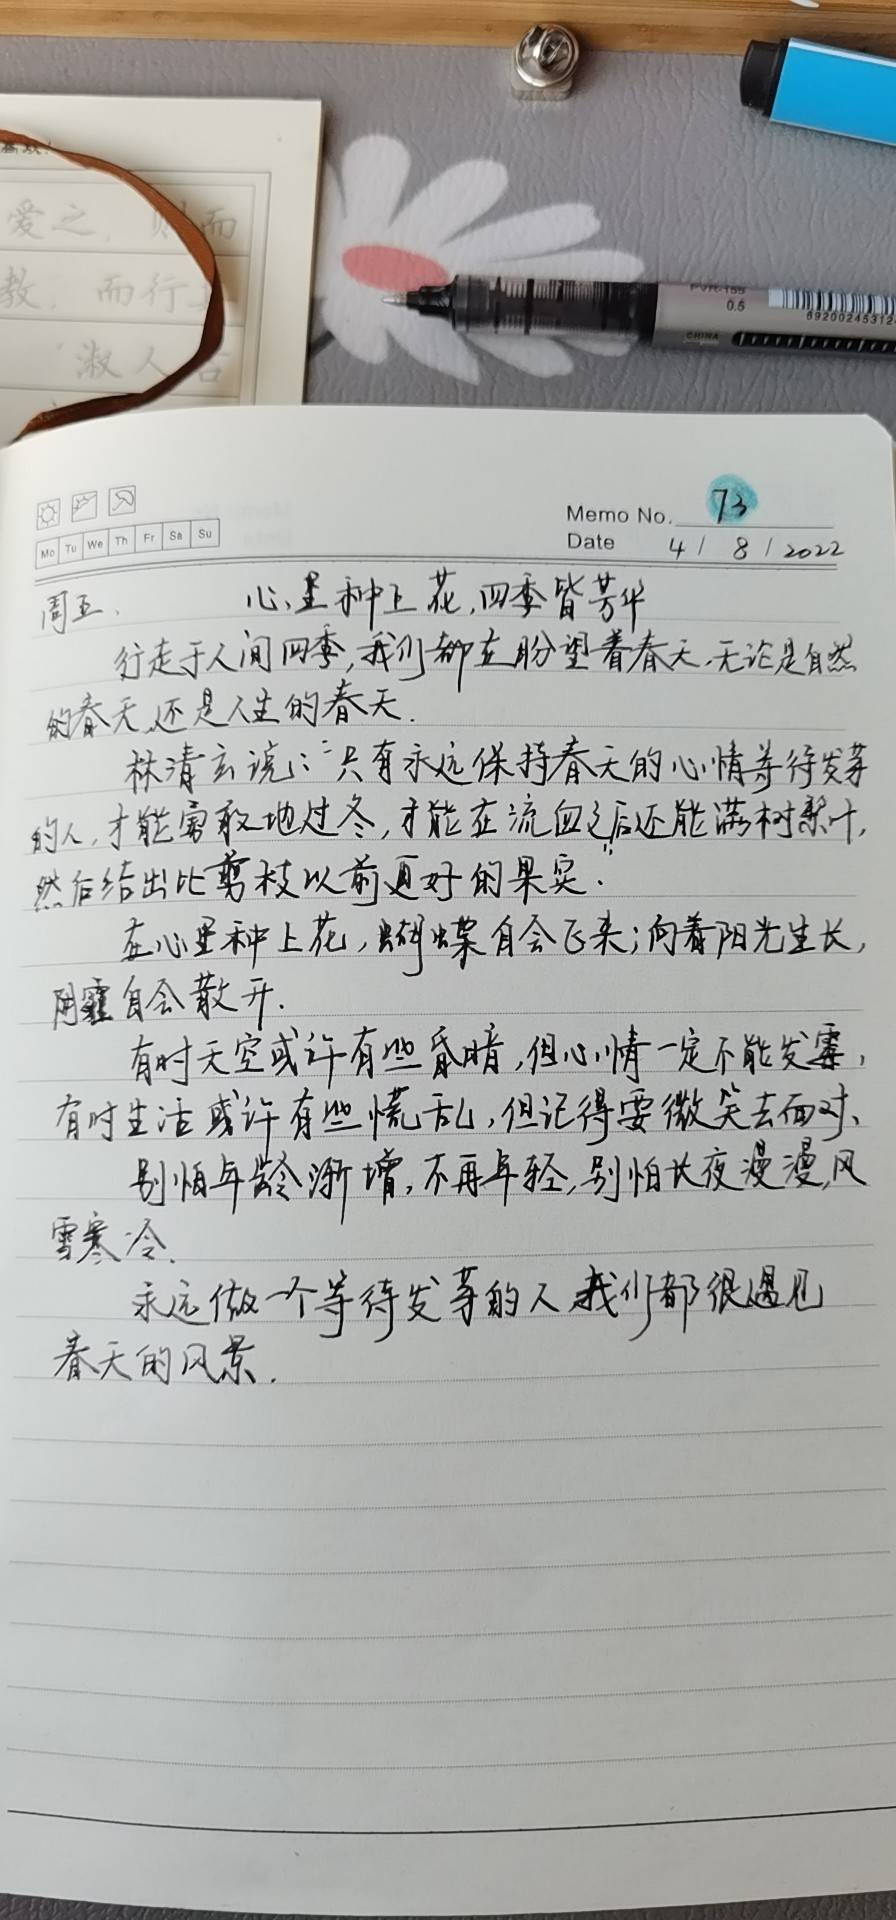 爱之,则而
教.而行
淑人
PVR-155
0.5
CHINA
Memo No. 73
Mo Tu We Th Fr Sa Su
Date 4 / 8 / 2022
周五. 心里种上花,四季皆芳华
行走于人间四季,我们都在盼望着春天.无论是自然
的春天,还是人生的春天.
林清玄说:“只有永远保持春天的心情等待发芽
的人,才能勇敢地过冬,才能在流血之后还能满树繁叶,
然后结出比剪枝以前更好的果实.”
在心里种上花,蝴蝶自会飞来;向着阳光生长,
阴霾自会散开.
有时天空或许有些昏暗,但心情一定不能发霉,
有时生活或许有些慌乱,但记得要微笑去面对、
别怕年龄渐增,不再年轻,别怕长夜漫漫,风
雪寒冷.
永远做一个等待发芽的人,我们都很遇见
春天的风景.